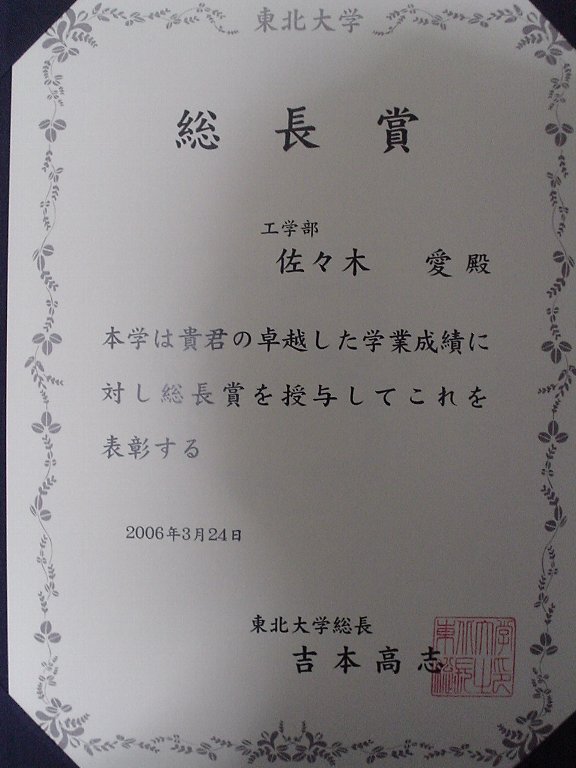 東北大学
総長賞
工学部
佐々木 愛殿
本学は貴君の卓越した学業成績に
対し総長賞を授与してこれを
表彰する
2006年3月24日
東北大学総長
吉本高志
東北大学
総長之印
東北大学